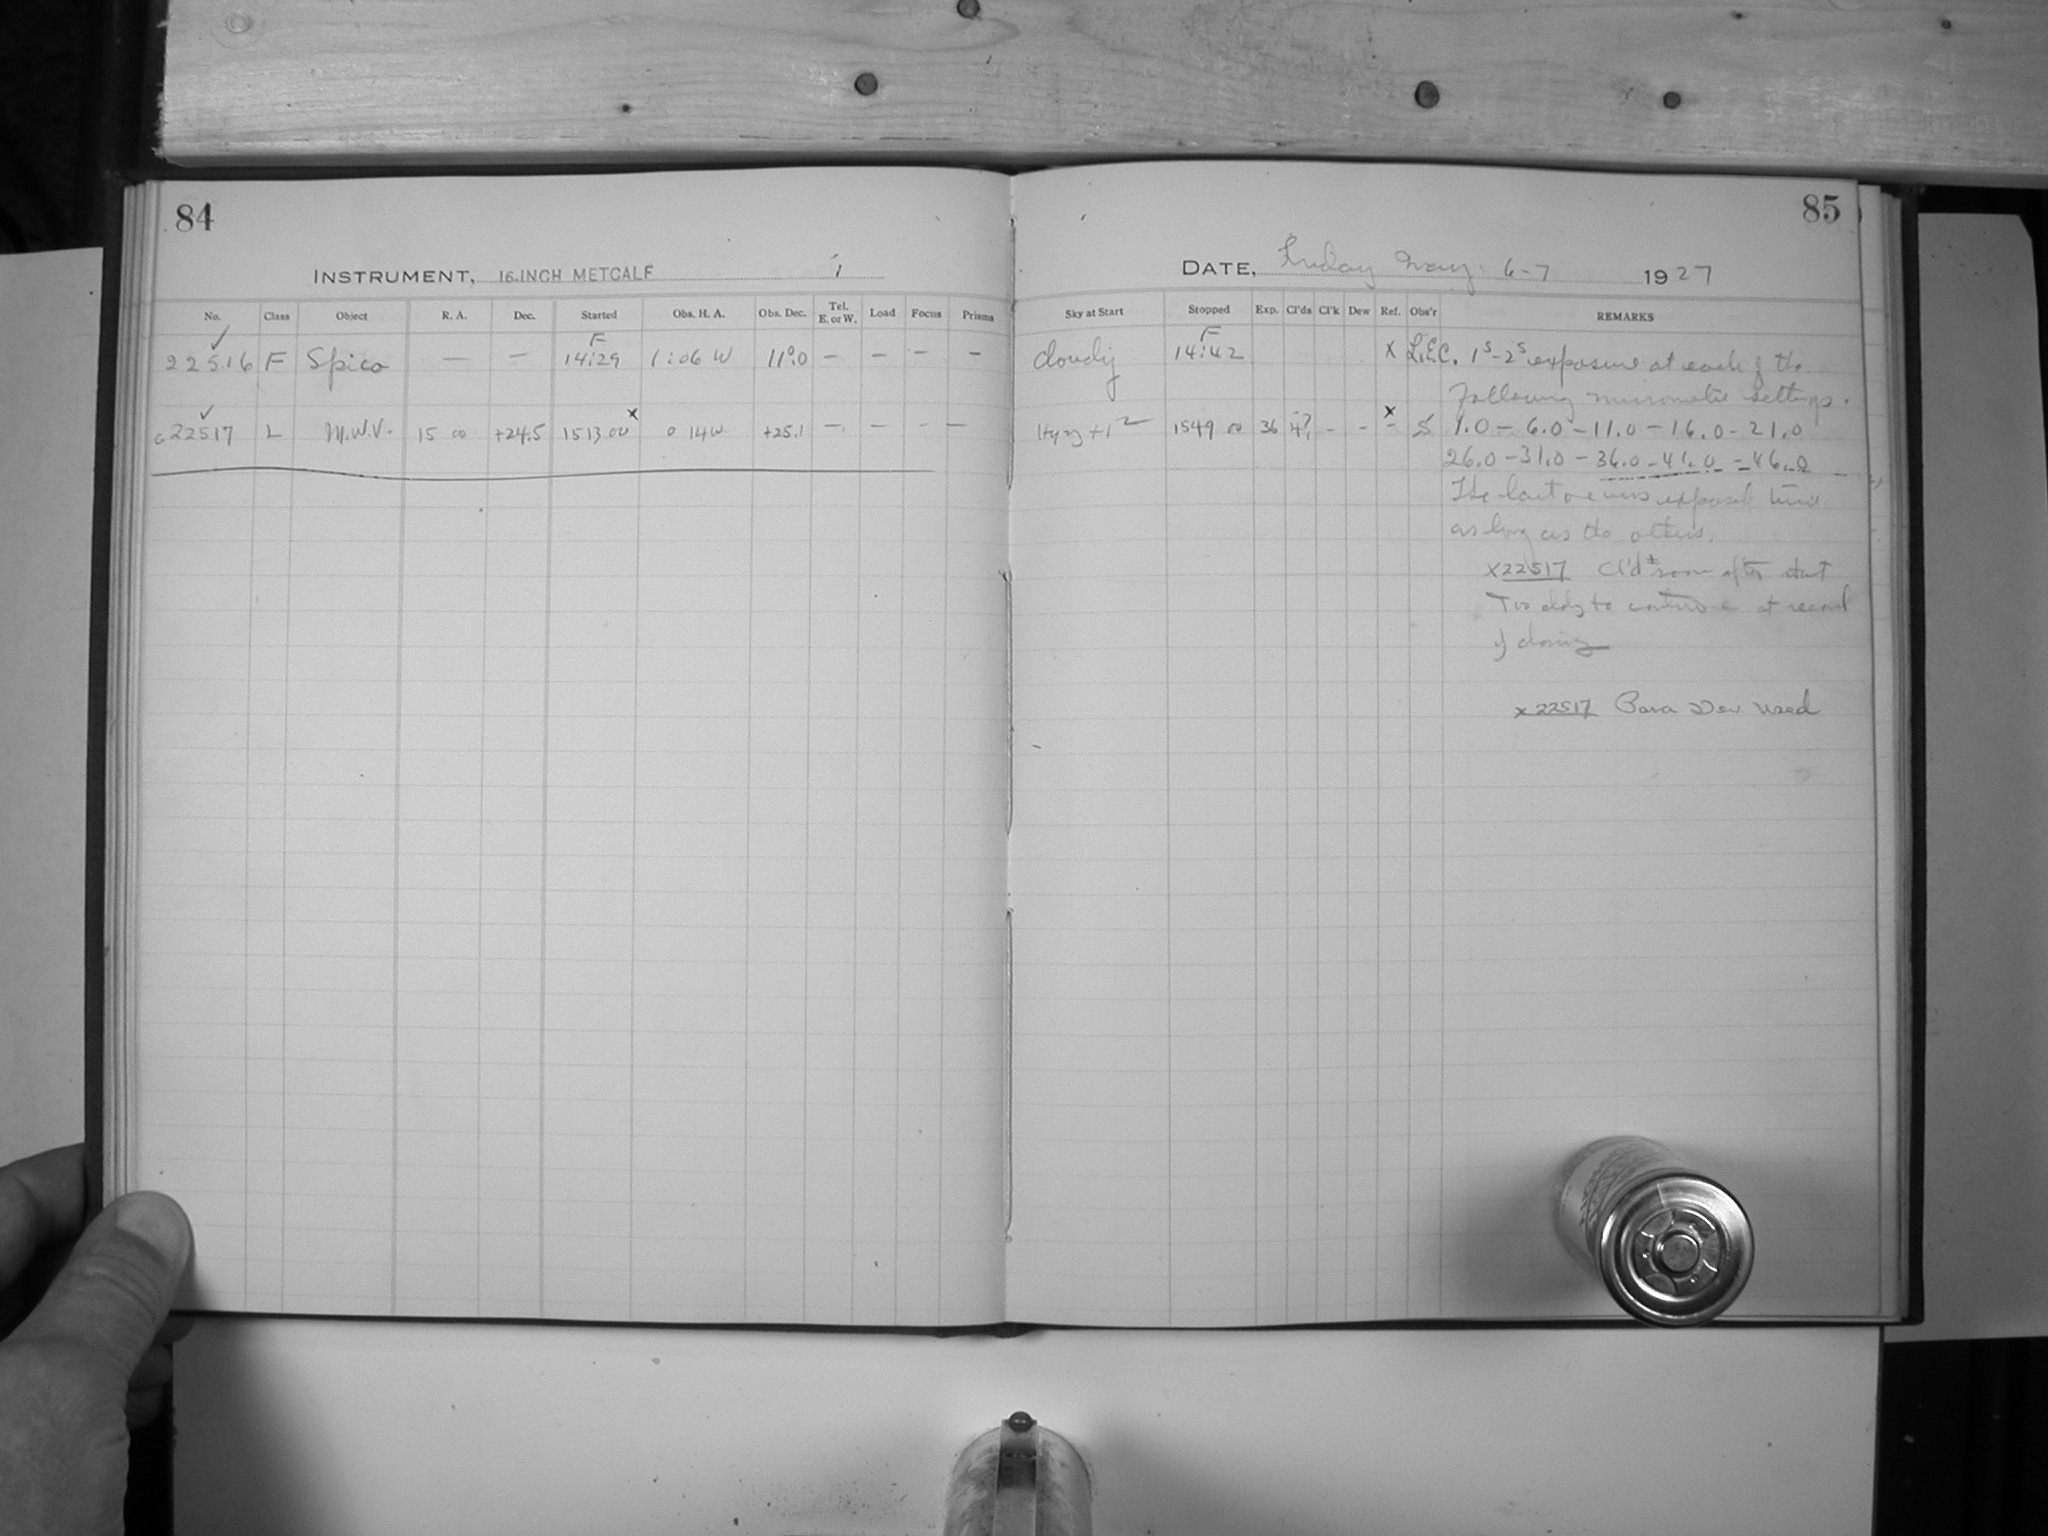 84
INSTRUMENT, 16-INCH METCALF 1
No. Class Object R. A. Dec. Started Obs. H. A. Obs. Dec. Tel. E. or W. Load Focus Prisms
22516 F Spica — — F 14:29 1:06 W 11°.0 — — — —
c22517 L M.W.V. 15 00 +24.5 1513.00 x 0 14W +25.1 — — — —
85
DATE, Friday May 6-7 1927
Sky at Start Stopped Exp. Cl'ds Cl'k Dew Ref. Obs'r REMARKS
Cloudy F 14:42 X L.E.C. 1s-2s exposure at each of the
Following micrometer settings.
1549 00 36 - - x - 1.0 — 6.0 — 11.0 — 16.0 — 21.0
26.0 — 31.0 — 36.0 — 41.0 — 46.0
The last one was exposed twice
as long as the others.
x22517 Cl'd soon after start
Too cldy to continue at record
of closing
x 22517 Para Dev. used